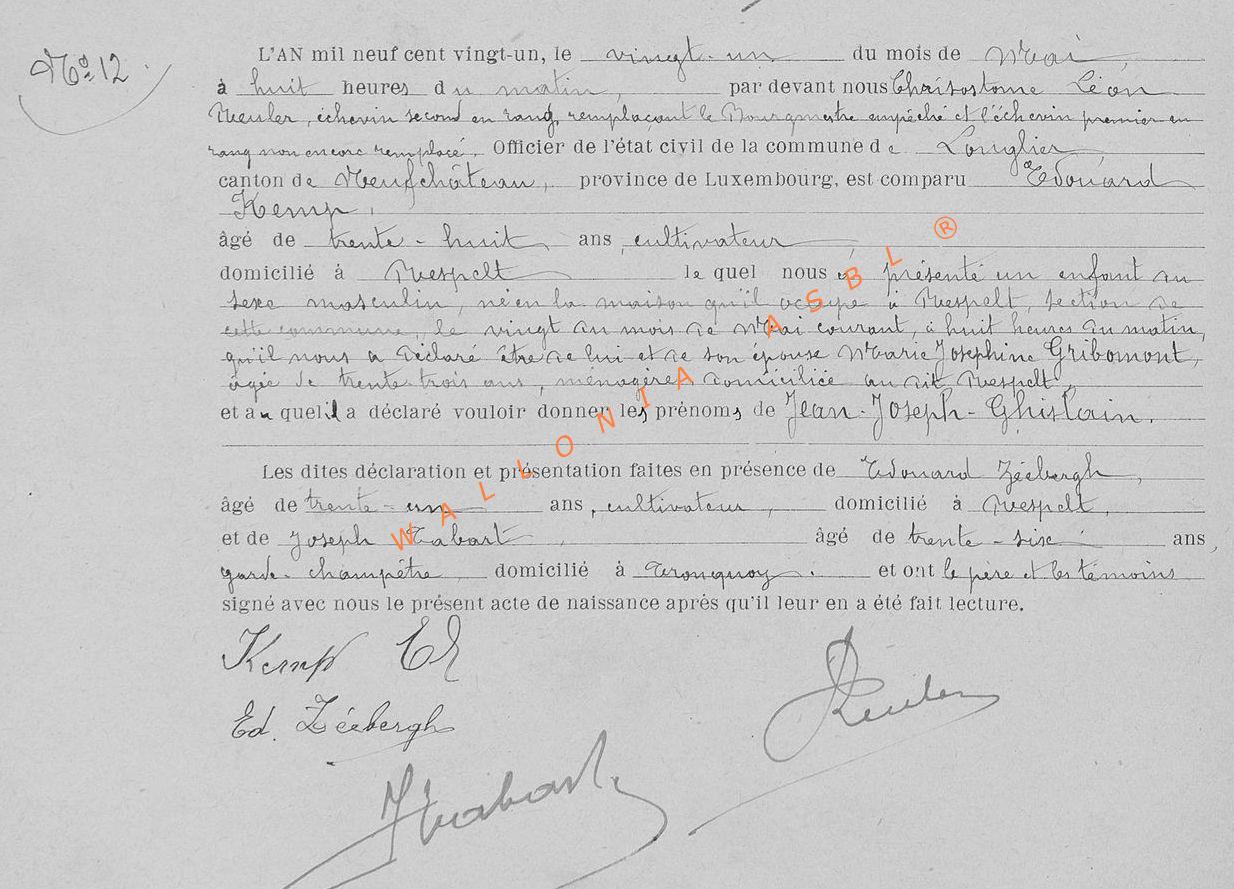 No 12
L'AN mil neuf cent vingt-un, le vingt-un du mois de Mai,
à huit heures du matin, par devant nous Chrisostome Léon
Meuler, échevin second en rang, remplaçant le Bourgmestre empêché et l'échevin premier en
rang non encore remplacé, Officier de l'état civil de la commune de Longlier,
canton de Neufchâteau, province de Luxembourg, est comparu Edouard
Kemp,
âgé de trente-huit ans, cultivateur,
domicilié à Respelt le quel nous a présenté un enfant du
sexe masculin, né en la maison qu'il occupe à Respelt, section de
cette commune, le vingt du mois de Mai courant, à huit heures du matin,
qu'il nous a déclaré être de lui et de son épouse Marie Josephine Gribomont,
âgée de trente-trois ans, ménagère, domiciliée au dit Respelt,
et auquel il a déclaré vouloir donner les prénoms de Jean-Joseph-Ghislain.
Les dites déclaration et présentation faites en présence de Edouard Zéebergh,
âgé de trente-un ans, cultivateur, domicilié à Respelt,
et de Joseph Tabart, âgé de trente-six ans,
garde-champêtre, domicilié à Tronquoy. et ont le père et les témoins
signé avec nous le présent acte de naissance après qu'il leur en a été fait lecture.
Kemp Ed
Ed. Zéebergh
WALLONIA ASBL ®